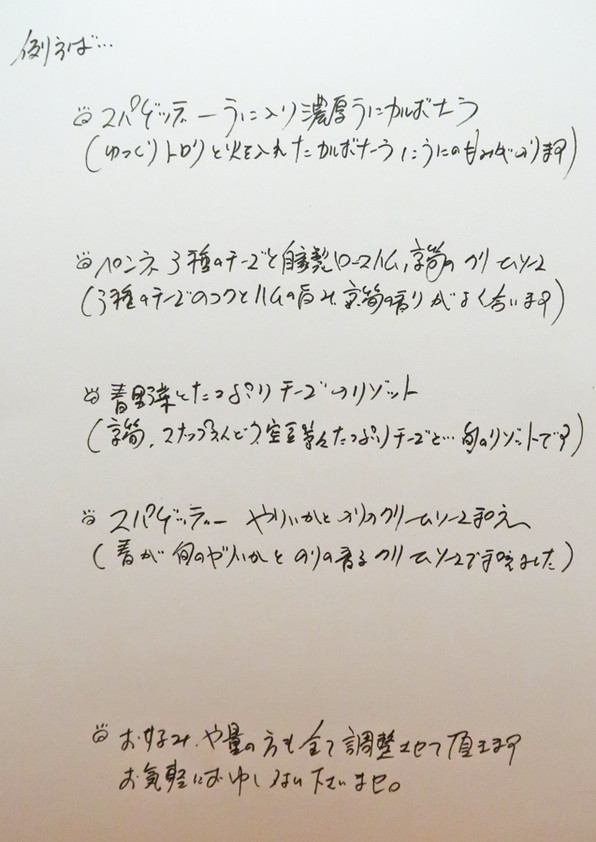 例えば…
スパゲッティー うに入り濃厚うにカルボナーラ
(ゆっくりトロリと火を入れたカルボナーラにうにの甘みがのります)
ペンネ 3種のチーズと自家製ロースハム、京筍のクリームソース
(3種のチーズのコクとハムの旨み、京筍の香りがよく合います)
春野菜とたっぷりチーズのリゾット
(京筍、スナップえんどう、空豆等々たっぷりチーズと…旬のリゾットです)
スパゲッティー やりいかとのりのクリームソース和え
(春が旬のやりいかとのりの香るクリームソースで和えました)
お好み、や量の方も全て調整させて頂きます
お気軽にお申しつけ下さいませ。